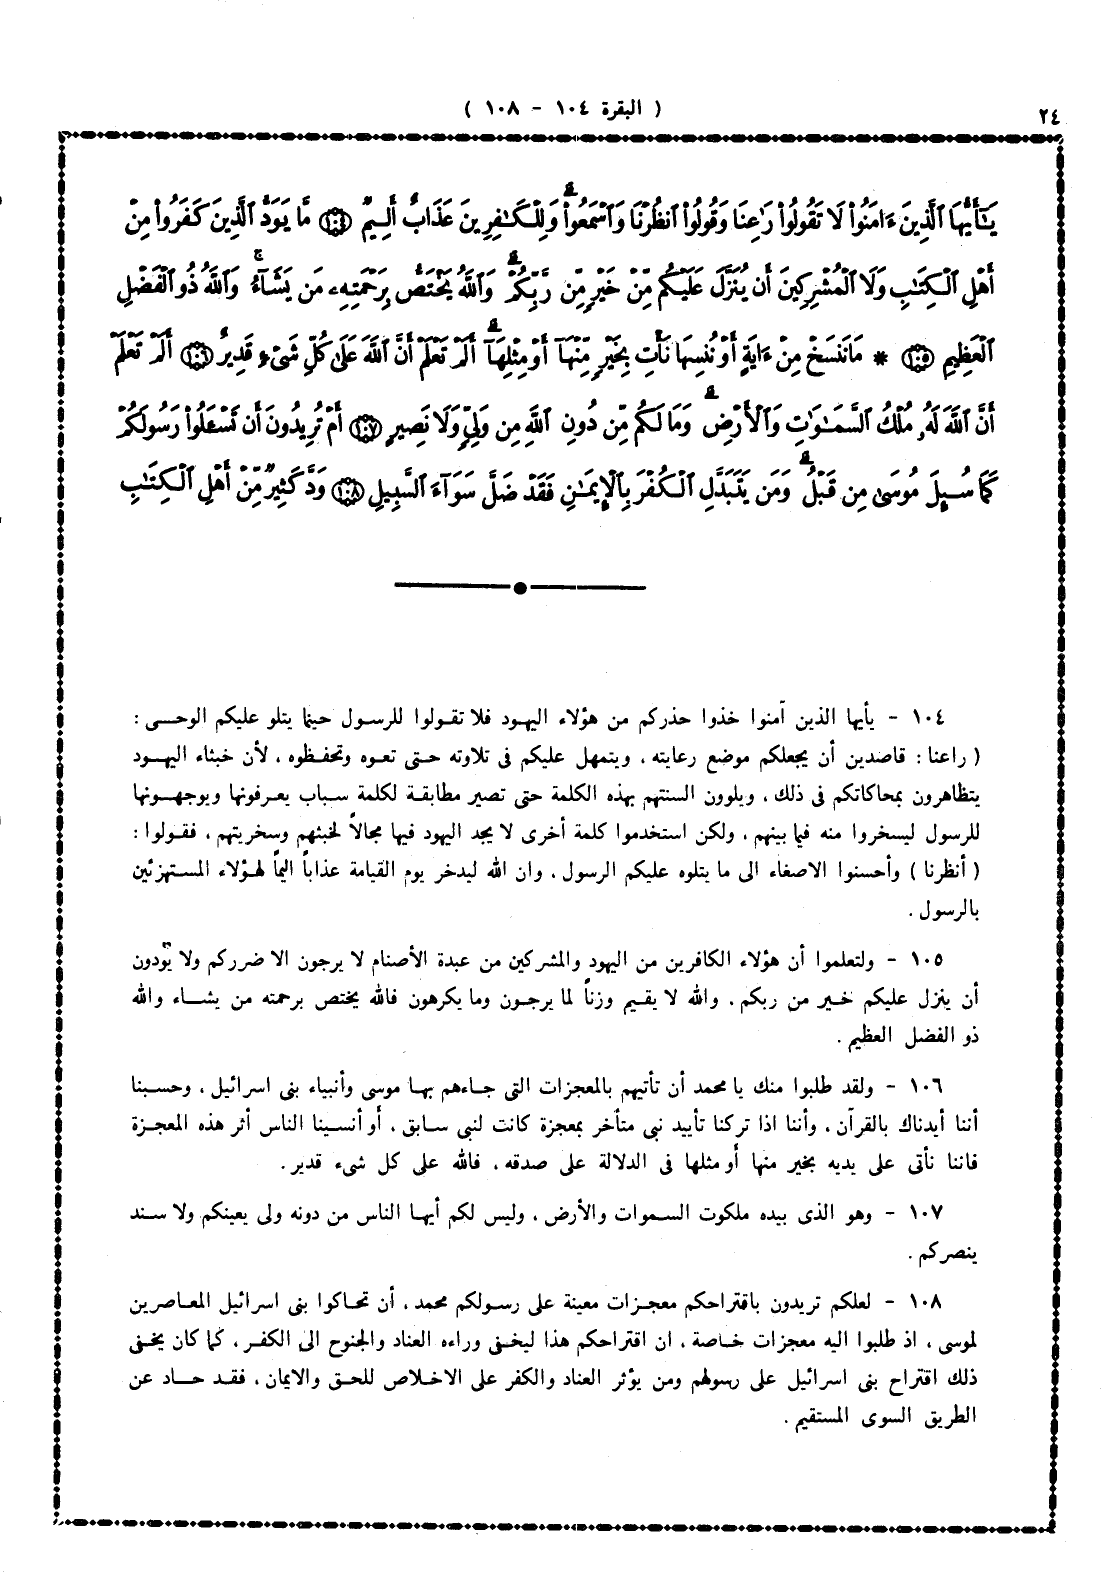 ٢٤
( البقرة ١٠٤ - ١٠٨ )
يَـٰٓأَيُّهَا ٱلَّذِينَ ءَامَنُوا۟ لَا تَقُولُوا۟ رَٰعِنَا وَقُولُوا۟ ٱنظُرْنَا وَٱسْمَعُوا۟ ۗ وَلِلْكَـٰفِرِينَ عَذَابٌ أَلِيمٌ ﴿١٠٤﴾ مَّا يَوَدُّ ٱلَّذِينَ كَفَرُوا۟ مِنْ
أَهْلِ ٱلْكِتَـٰبِ وَلَا ٱلْمُشْرِكِينَ أَن يُنَزَّلَ عَلَيْكُم مِّنْ خَيْرٍ مِّن رَّبِّكُمْ ۗ وَٱللَّهُ يَخْتَصُّ بِرَحْمَتِهِۦ مَن يَشَآءُ ۚ وَٱللَّهُ ذُو ٱلْفَضْلِ
ٱلْعَظِيمِ ﴿١٠٥﴾ * مَا نَنسَخْ مِنْ ءَايَةٍ أَوْ نُنسِهَا نَأْتِ بِخَيْرٍ مِّنْهَآ أَوْ مِثْلِهَآ ۗ أَلَمْ تَعْلَمْ أَنَّ ٱللَّهَ عَلَىٰ كُلِّ شَىْءٍ قَدِيرٌ ﴿١٠٦﴾ أَلَمْ تَعْلَمْ
أَنَّ ٱللَّهَ لَهُۥ مُلْكُ ٱلسَّمَـٰوَٰتِ وَٱلْأَرْضِ ۗ وَمَا لَكُم مِّن دُونِ ٱللَّهِ مِن وَلِىٍّ وَلَا نَصِيرٍ ﴿١٠٧﴾ أَمْ تُرِيدُونَ أَن تَسْـَٔلُوا۟ رَسُولَكُمْ
كَمَا سُئِلَ مُوسَىٰ مِن قَبْلُ ۗ وَمَن يَتَبَدَّلِ ٱلْكُفْرَ بِٱلْإِيمَـٰنِ فَقَدْ ضَلَّ سَوَآءَ ٱلسَّبِيلِ ﴿١٠٨﴾ وَدَّ كَثِيرٌ مِّنْ أَهْلِ ٱلْكِتَـٰبِ
١٠٤ - يأيها الذين آمنوا خذوا حذركم من هؤلاء اليهود فلا تقولوا للرسول حينما يتلو عليكم الوحى :
( راعنا : قاصدين أن يجعلكم موضع رعايته ، ويتمهل عليكم فى تلاوته حتى تعوه وتحفظوه ، لأن خبثاء اليهود
يتظاهرون بمحاكاتكم فى ذلك ، ويلوون السنتهم بهذه الكلمة حتى تصير مطابقة لكلمة سباب يعرفونها ويوجهونها
للرسول ليسخروا منه فيما بينهم ، ولكن استخدموا كلمة أخرى لا يجد اليهود فيها مجالاً لخبثهم وسخريتهم ، فقولوا :
( أنظرنا ) وأحسنوا الاصغاء الى ما يتلوه عليكم الرسول ، وان الله ليدخر يوم القيامة عذاباً اليماً لهؤلاء المستهزئين
بالرسول .
١٠٥ - ولتعلموا أن هؤلاء الكافرين من اليهود والمشركين من عبدة الأصنام لا يرجون الا ضرركم ولا يودون
أن ينزل عليكم خير من ربكم ، والله لا يقيم وزناً لما يرجون وما يكرهون فالله يختص برحمته من يشاء والله
ذو الفضل العظيم .
١٠٦ - ولقد طلبوا منك يا محمد أن تأتيهم بالمعجزات التى جاءهم بها موسى وأنبياء بنى اسرائيل ، وحسبنا
أننا أيدناك بالقرآن ، وأننا اذا تركنا تأييد نبى متأخر بمعجزة كانت لنبى سابق ، أو أنسينا الناس أثر هذه المعجزة
فاننا نأتى على يديه بخير منها أو مثلها فى الدلالة على صدقه ، فالله على كل شىء قدير .
١٠٧ - وهو الذى بيده ملكوت السموات والأرض ، وليس لكم أيها الناس من دونه ولى يعينكم ولا سند
ينصركم .
١٠٨ - لعلكم تريدون باقتراحكم معجزات معينة على رسولكم محمد ، أن تحاكوا بنى اسرائيل المعاصرين
لموسى ، اذ طلبوا اليه معجزات خاصة ، ان اقتراحكم هذا ليخفى وراءه العناد والجنوح الى الكفر ، كما كان يخفى
ذلك اقتراح بنى اسرائيل على رسولهم ومن يؤثر العناد والكفر على الاخلاص للحق والايمان ، فقد حاد عن
الطريق السوى المستقيم .